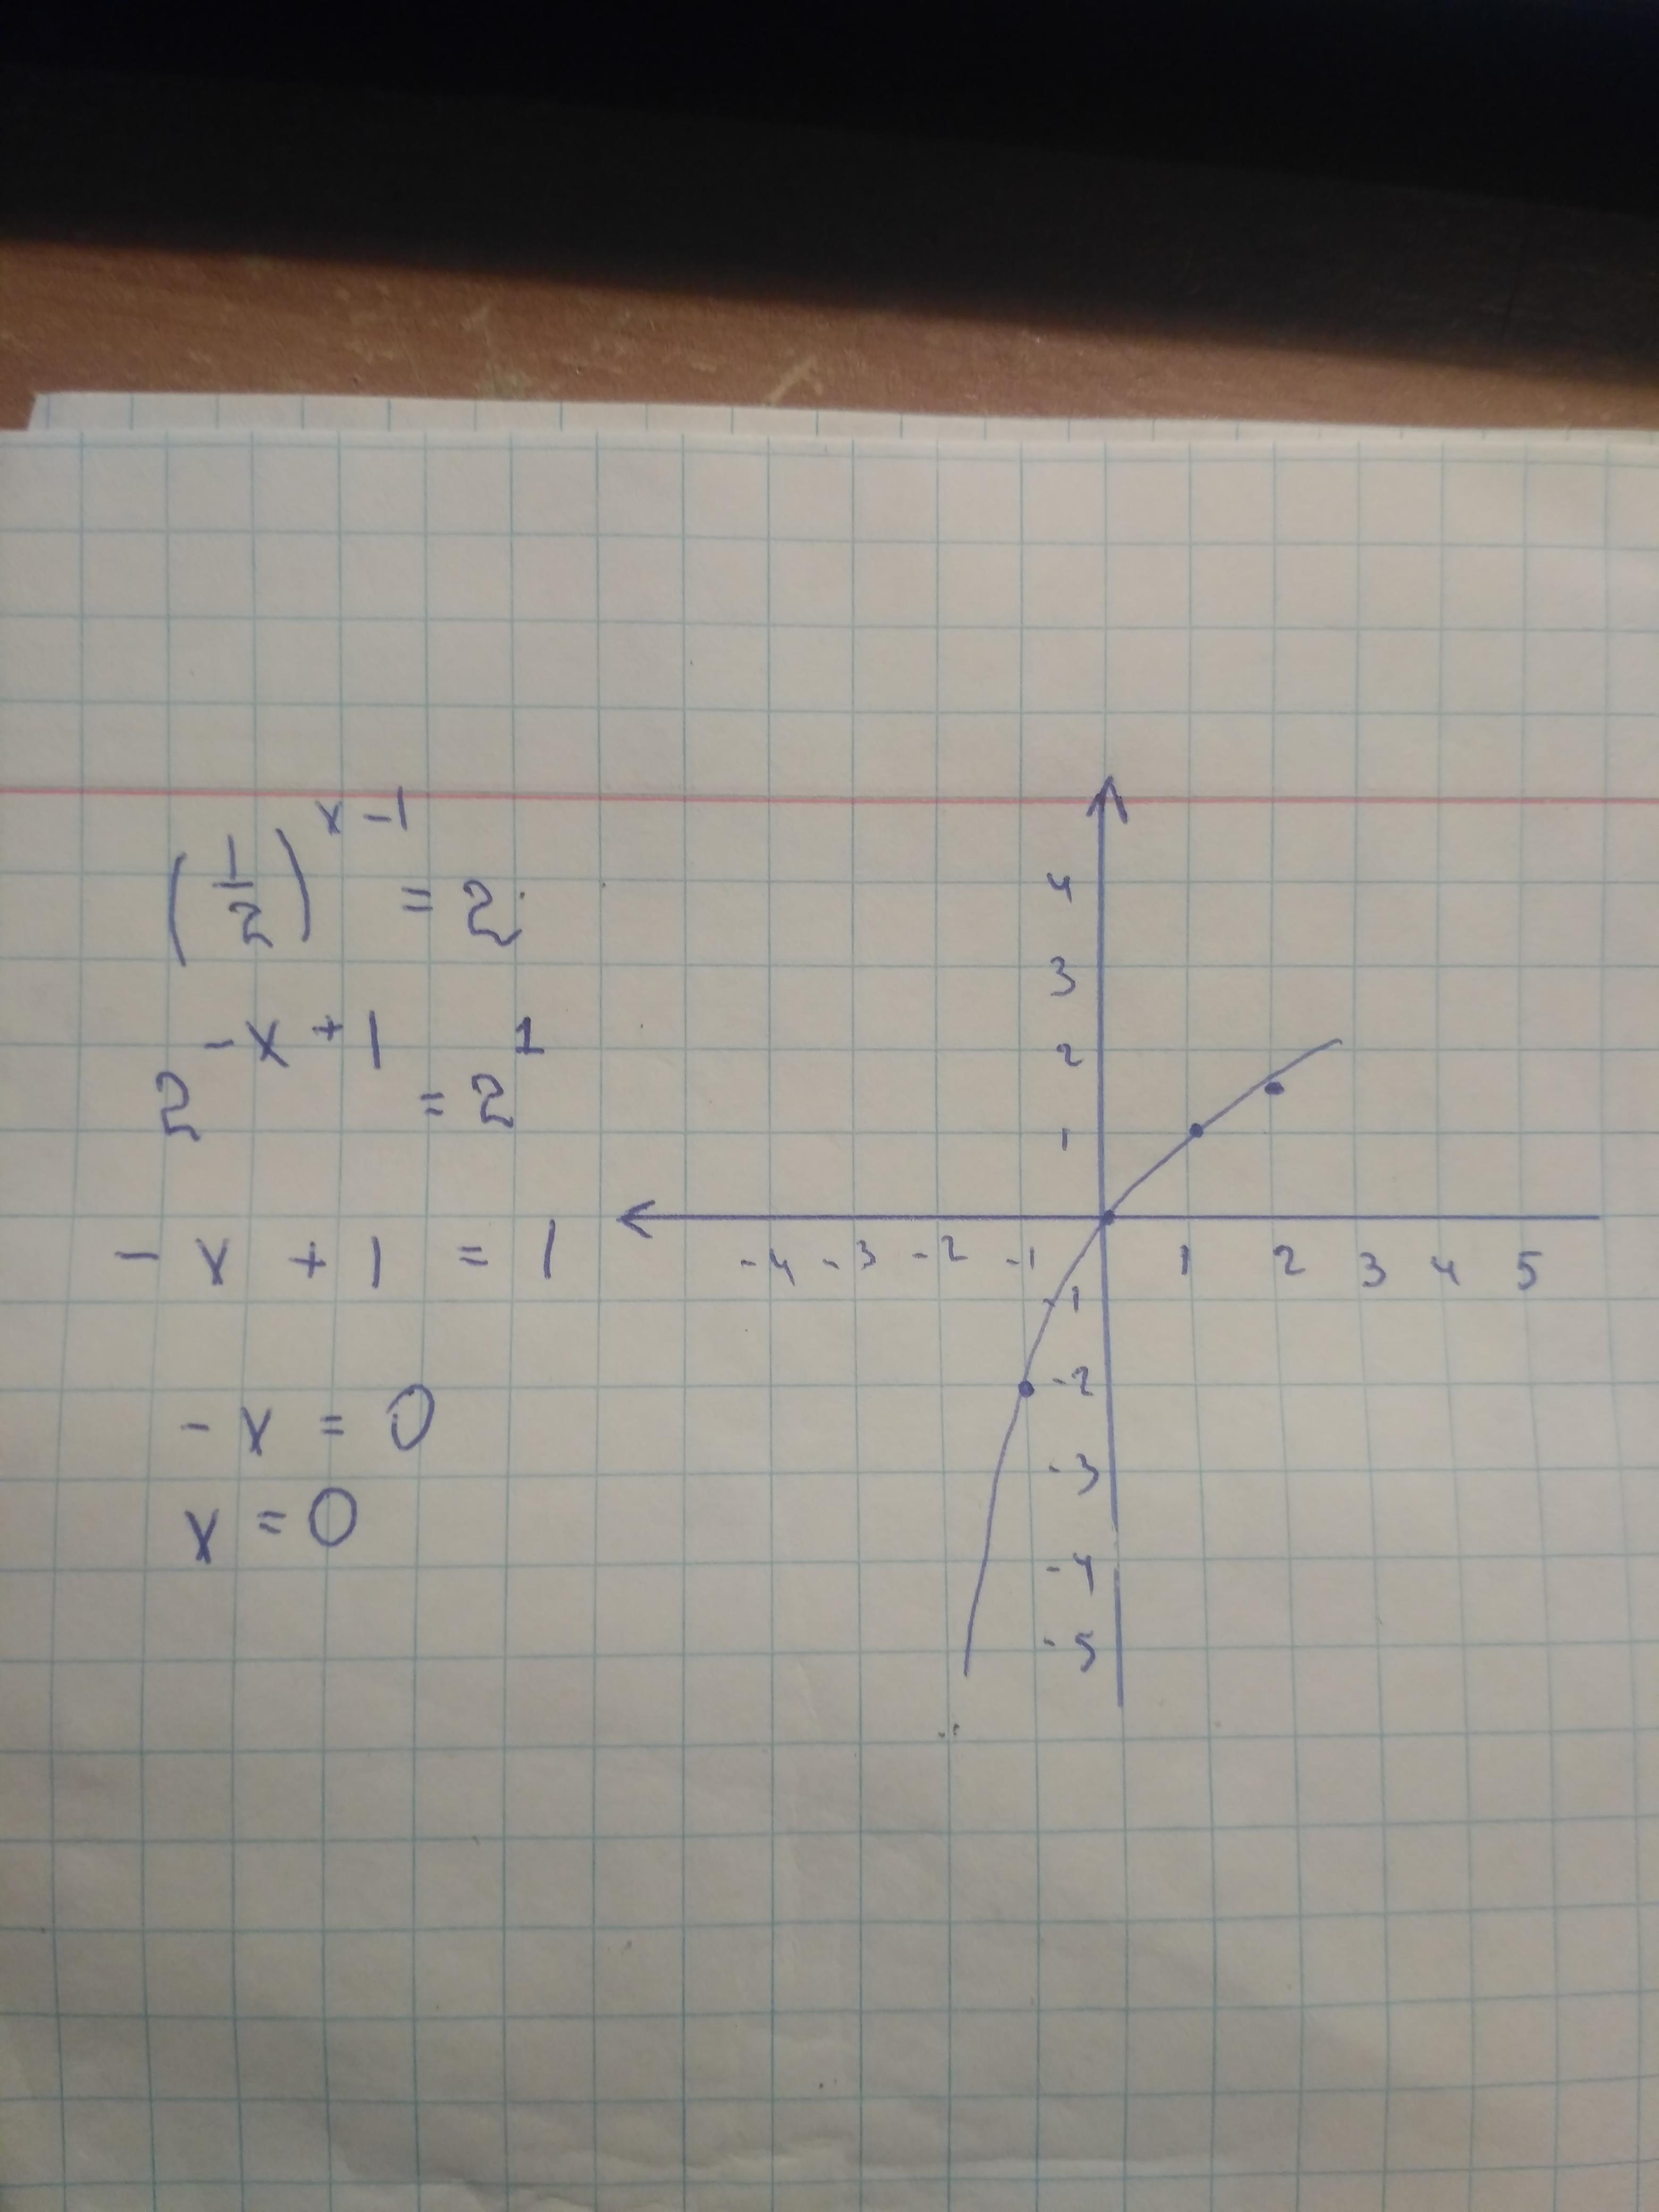 (1/2)^(x-1) = 2
2^(-x+1) = 2^1
-x + 1 = 1
-x = 0
x = 0
4
3
2
1
-4 -3 -2 -1 1 2 3 4 5
-1
-2
-3
-4
-5